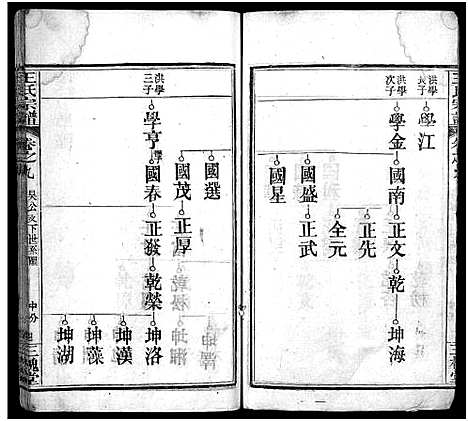 洪學長子
學江
洪學次子
學金
國南
正文
乾
坤海
正先
全元
國盛
正武
國星
三槐堂
國選
國茂
正厚
洪學三子
學亨
國春
正發
乾榮
坤洛
坤漢
坤藻
坤湖
王氏宗譜
卷之九
中分
三槐堂